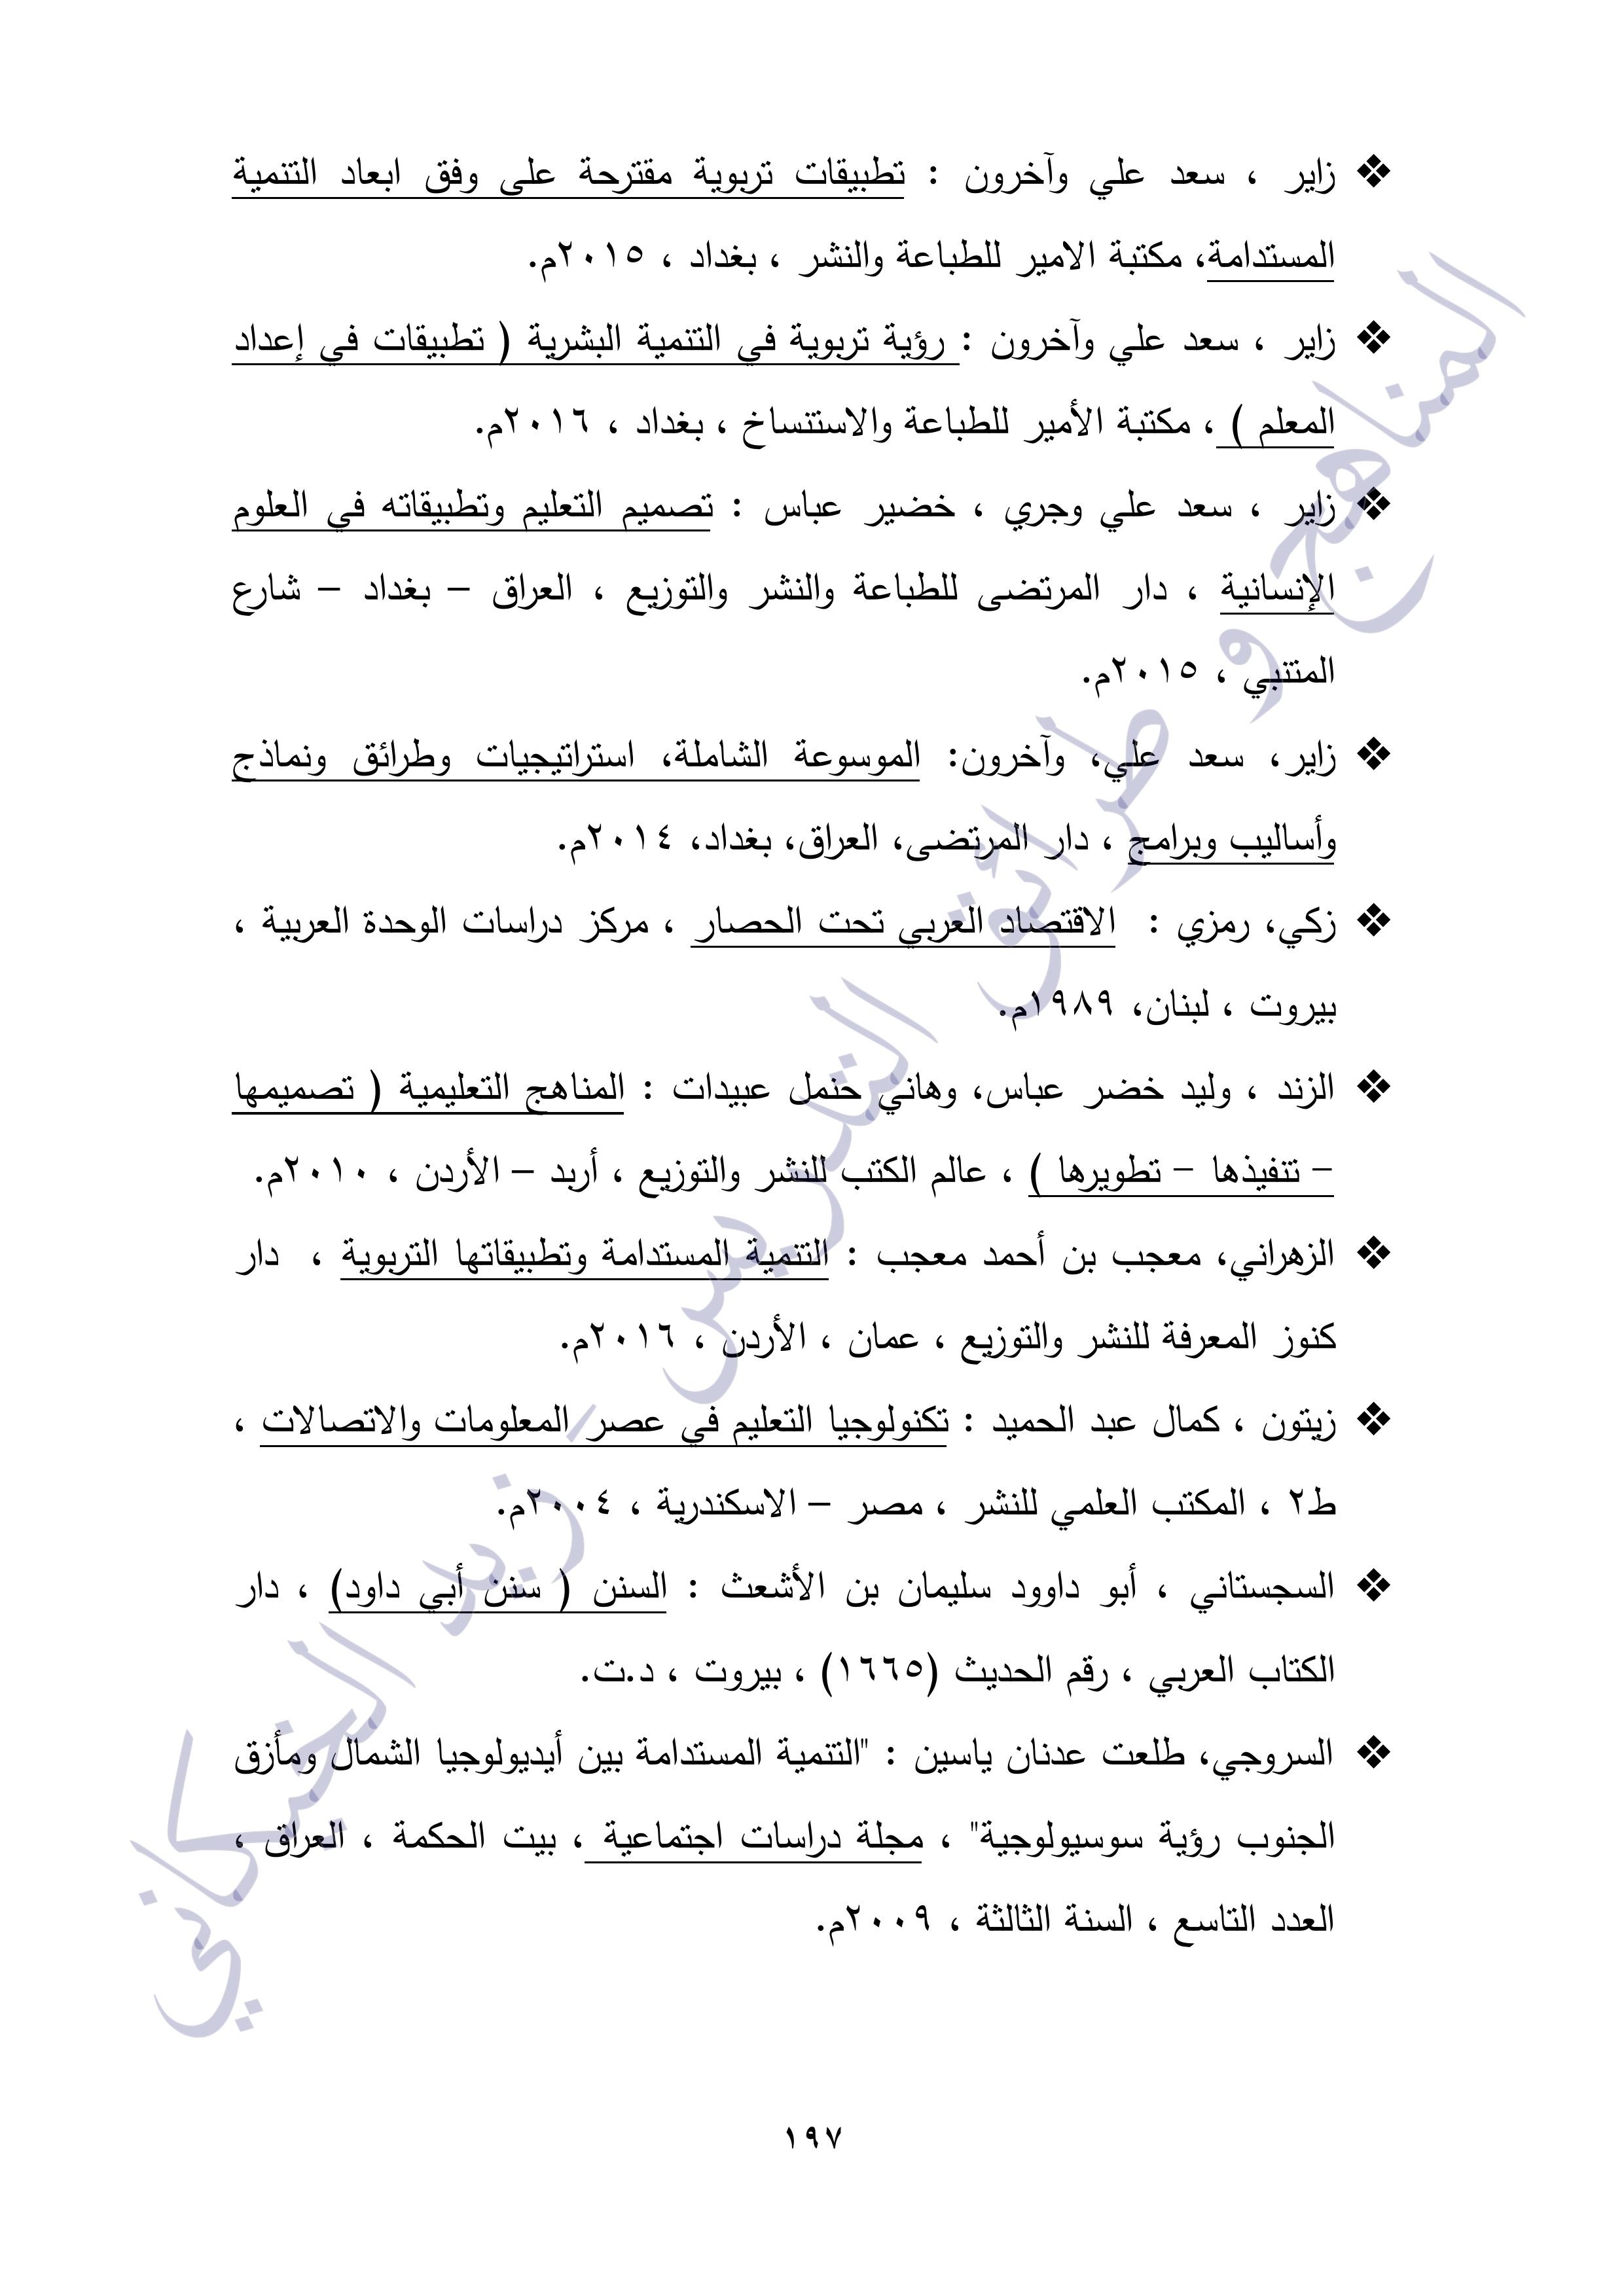 ❖ زاير ، سعد علي وآخرون : تطبيقات تربوية مقترحة على وفق ابعاد التنمية
المستدامة، مكتبة الامير للطباعة والنشر ، بغداد ، ٢٠١٥م.
❖ زاير ، سعد علي وآخرون : رؤية تربوية في التنمية البشرية ( تطبيقات في إعداد
المعلم ) ، مكتبة الأمير للطباعة والاستنساخ ، بغداد ، ٢٠١٦م.
❖ زاير ، سعد علي وجري ، خضير عباس : تصميم التعليم وتطبيقاته في العلوم
الإنسانية ، دار المرتضى للطباعة والنشر والتوزيع ، العراق – بغداد – شارع
المتنبي ، ٢٠١٥م.
❖ زاير، سعد علي، وآخرون: الموسوعة الشاملة، استراتيجيات وطرائق ونماذج
وأساليب وبرامج ، دار المرتضى، العراق، بغداد، ٢٠١٤م.
❖ زكي، رمزي : الاقتصاد العربي تحت الحصار ، مركز دراسات الوحدة العربية ،
بيروت ، لبنان، ١٩٨٩م.
❖ الزند ، وليد خضر عباس، وهاني حنمل عبيدات : المناهج التعليمية ( تصميمها
– تنفيذها – تطويرها ) ، عالم الكتب للنشر والتوزيع ، أربد – الأردن ، ٢٠١٠م.
❖ الزهراني، معجب بن أحمد معجب : التنمية المستدامة وتطبيقاتها التربوية ، دار
كنوز المعرفة للنشر والتوزيع ، عمان ، الأردن ، ٢٠١٦م.
❖ زيتون ، كمال عبد الحميد : تكنولوجيا التعليم في عصر المعلومات والاتصالات ،
ط٢ ، المكتب العلمي للنشر ، مصر – الاسكندرية ، ٢٠٠٤م.
❖ السجستاني ، أبو داوود سليمان بن الأشعث : السنن ( سنن أبي داود) ، دار
الكتاب العربي ، رقم الحديث (١٦٦٥) ، بيروت ، د.ت.
❖ السروجي، طلعت عدنان ياسين : "التنمية المستدامة بين أيديولوجيا الشمال ومأزق
الجنوب رؤية سوسيولوجية" ، مجلة دراسات اجتماعية ، بيت الحكمة ، العراق ،
العدد التاسع ، السنة الثالثة ، ٢٠٠٩م.
المناهج و طرائق التدريس - زيد الخيكاني
١٩٧